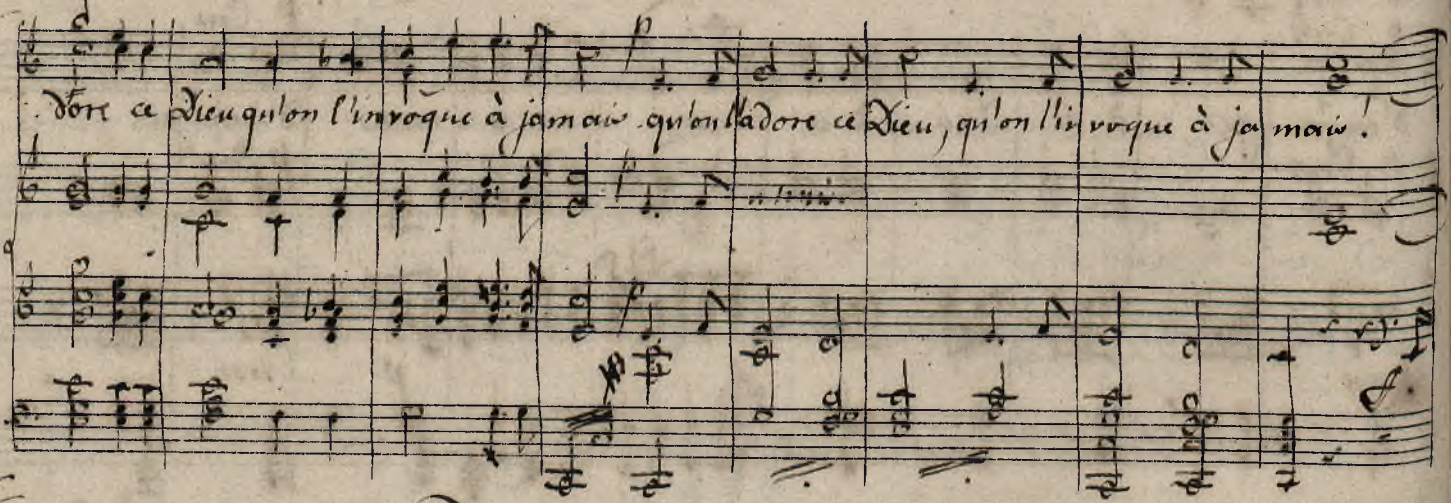 dore ce Dieu qu'on l'invoque à jamais qu'on l'adore ce Dieu, qu'on l'invoque à jamais !